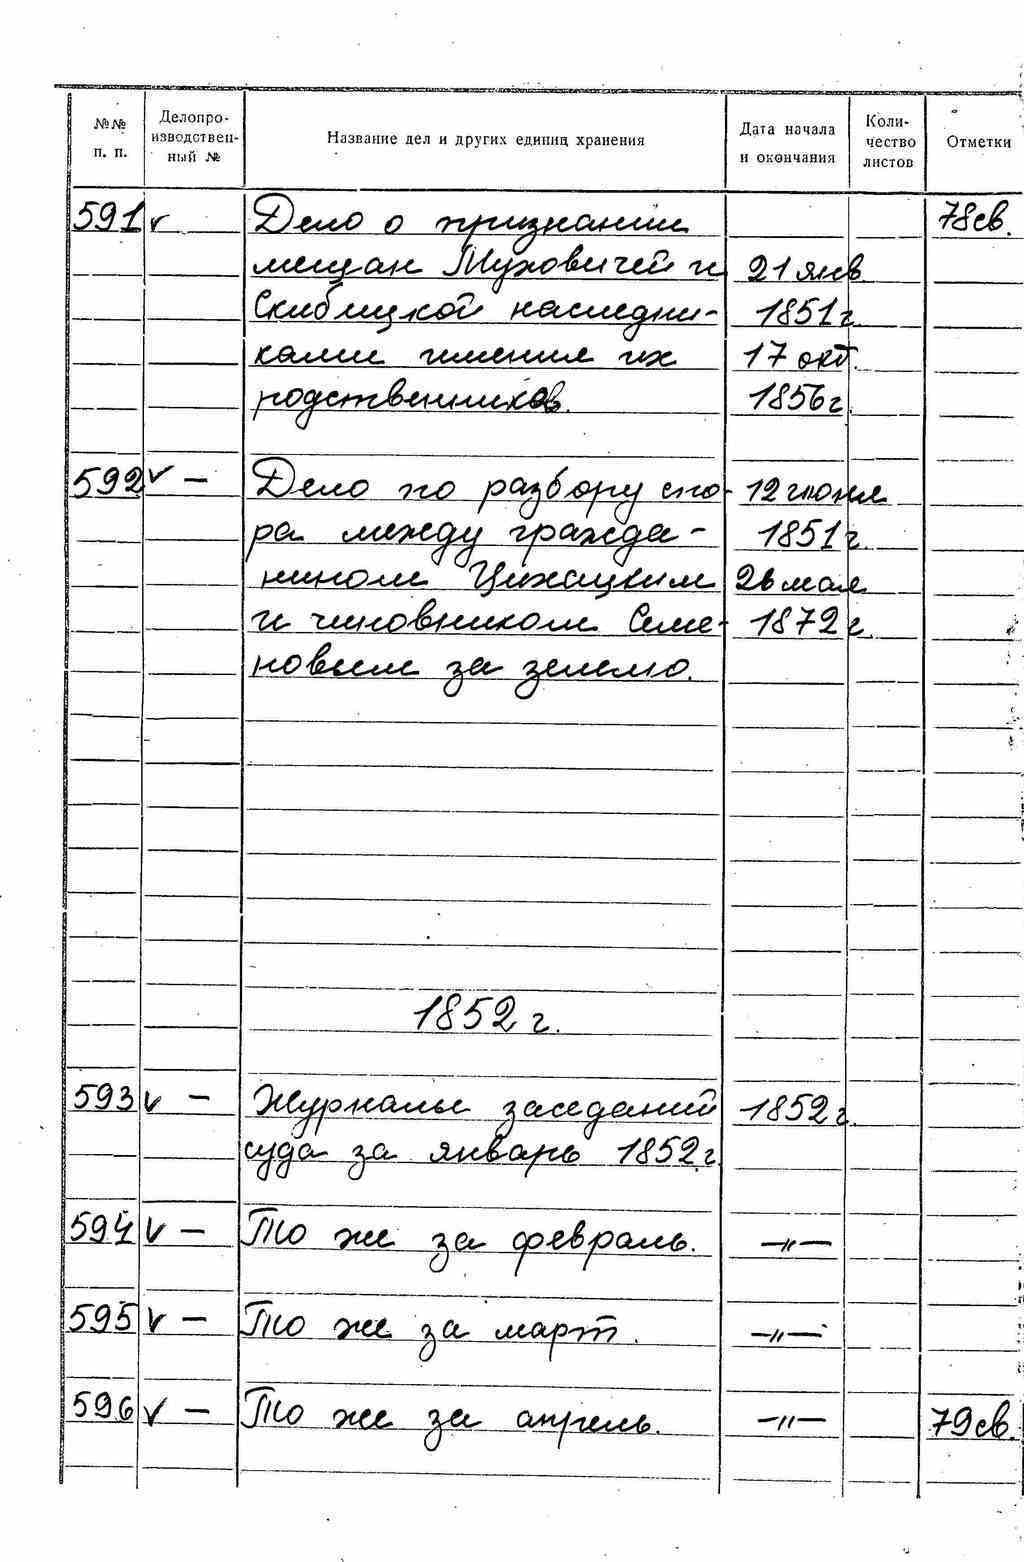 №№ п. п. Делопроизводственный № Название дел и других единиц хранения Дата начала и окончания Количество листов Отметки
591 v Дело о признании 78 св.
мещан Муховичей и 21 янв
Скиблицкой наследни- 1851 г.
ками имения их 17 окт.
родственников. 1856 г.
592 v — Дело по разбору спо- 12 июня
ра между гражда- 1851 г.
нином Цихацким 26 мая
и чиновником Семе- 1872 г.
новым за землю.
1852 г.
593 v — Журналы заседаний 1852 г.
суда за январь 1852 г.
594 v — То же за февраль. —"—
595 v — То же за март. —"—
596 v — То же за апрель. —"— 79 св.